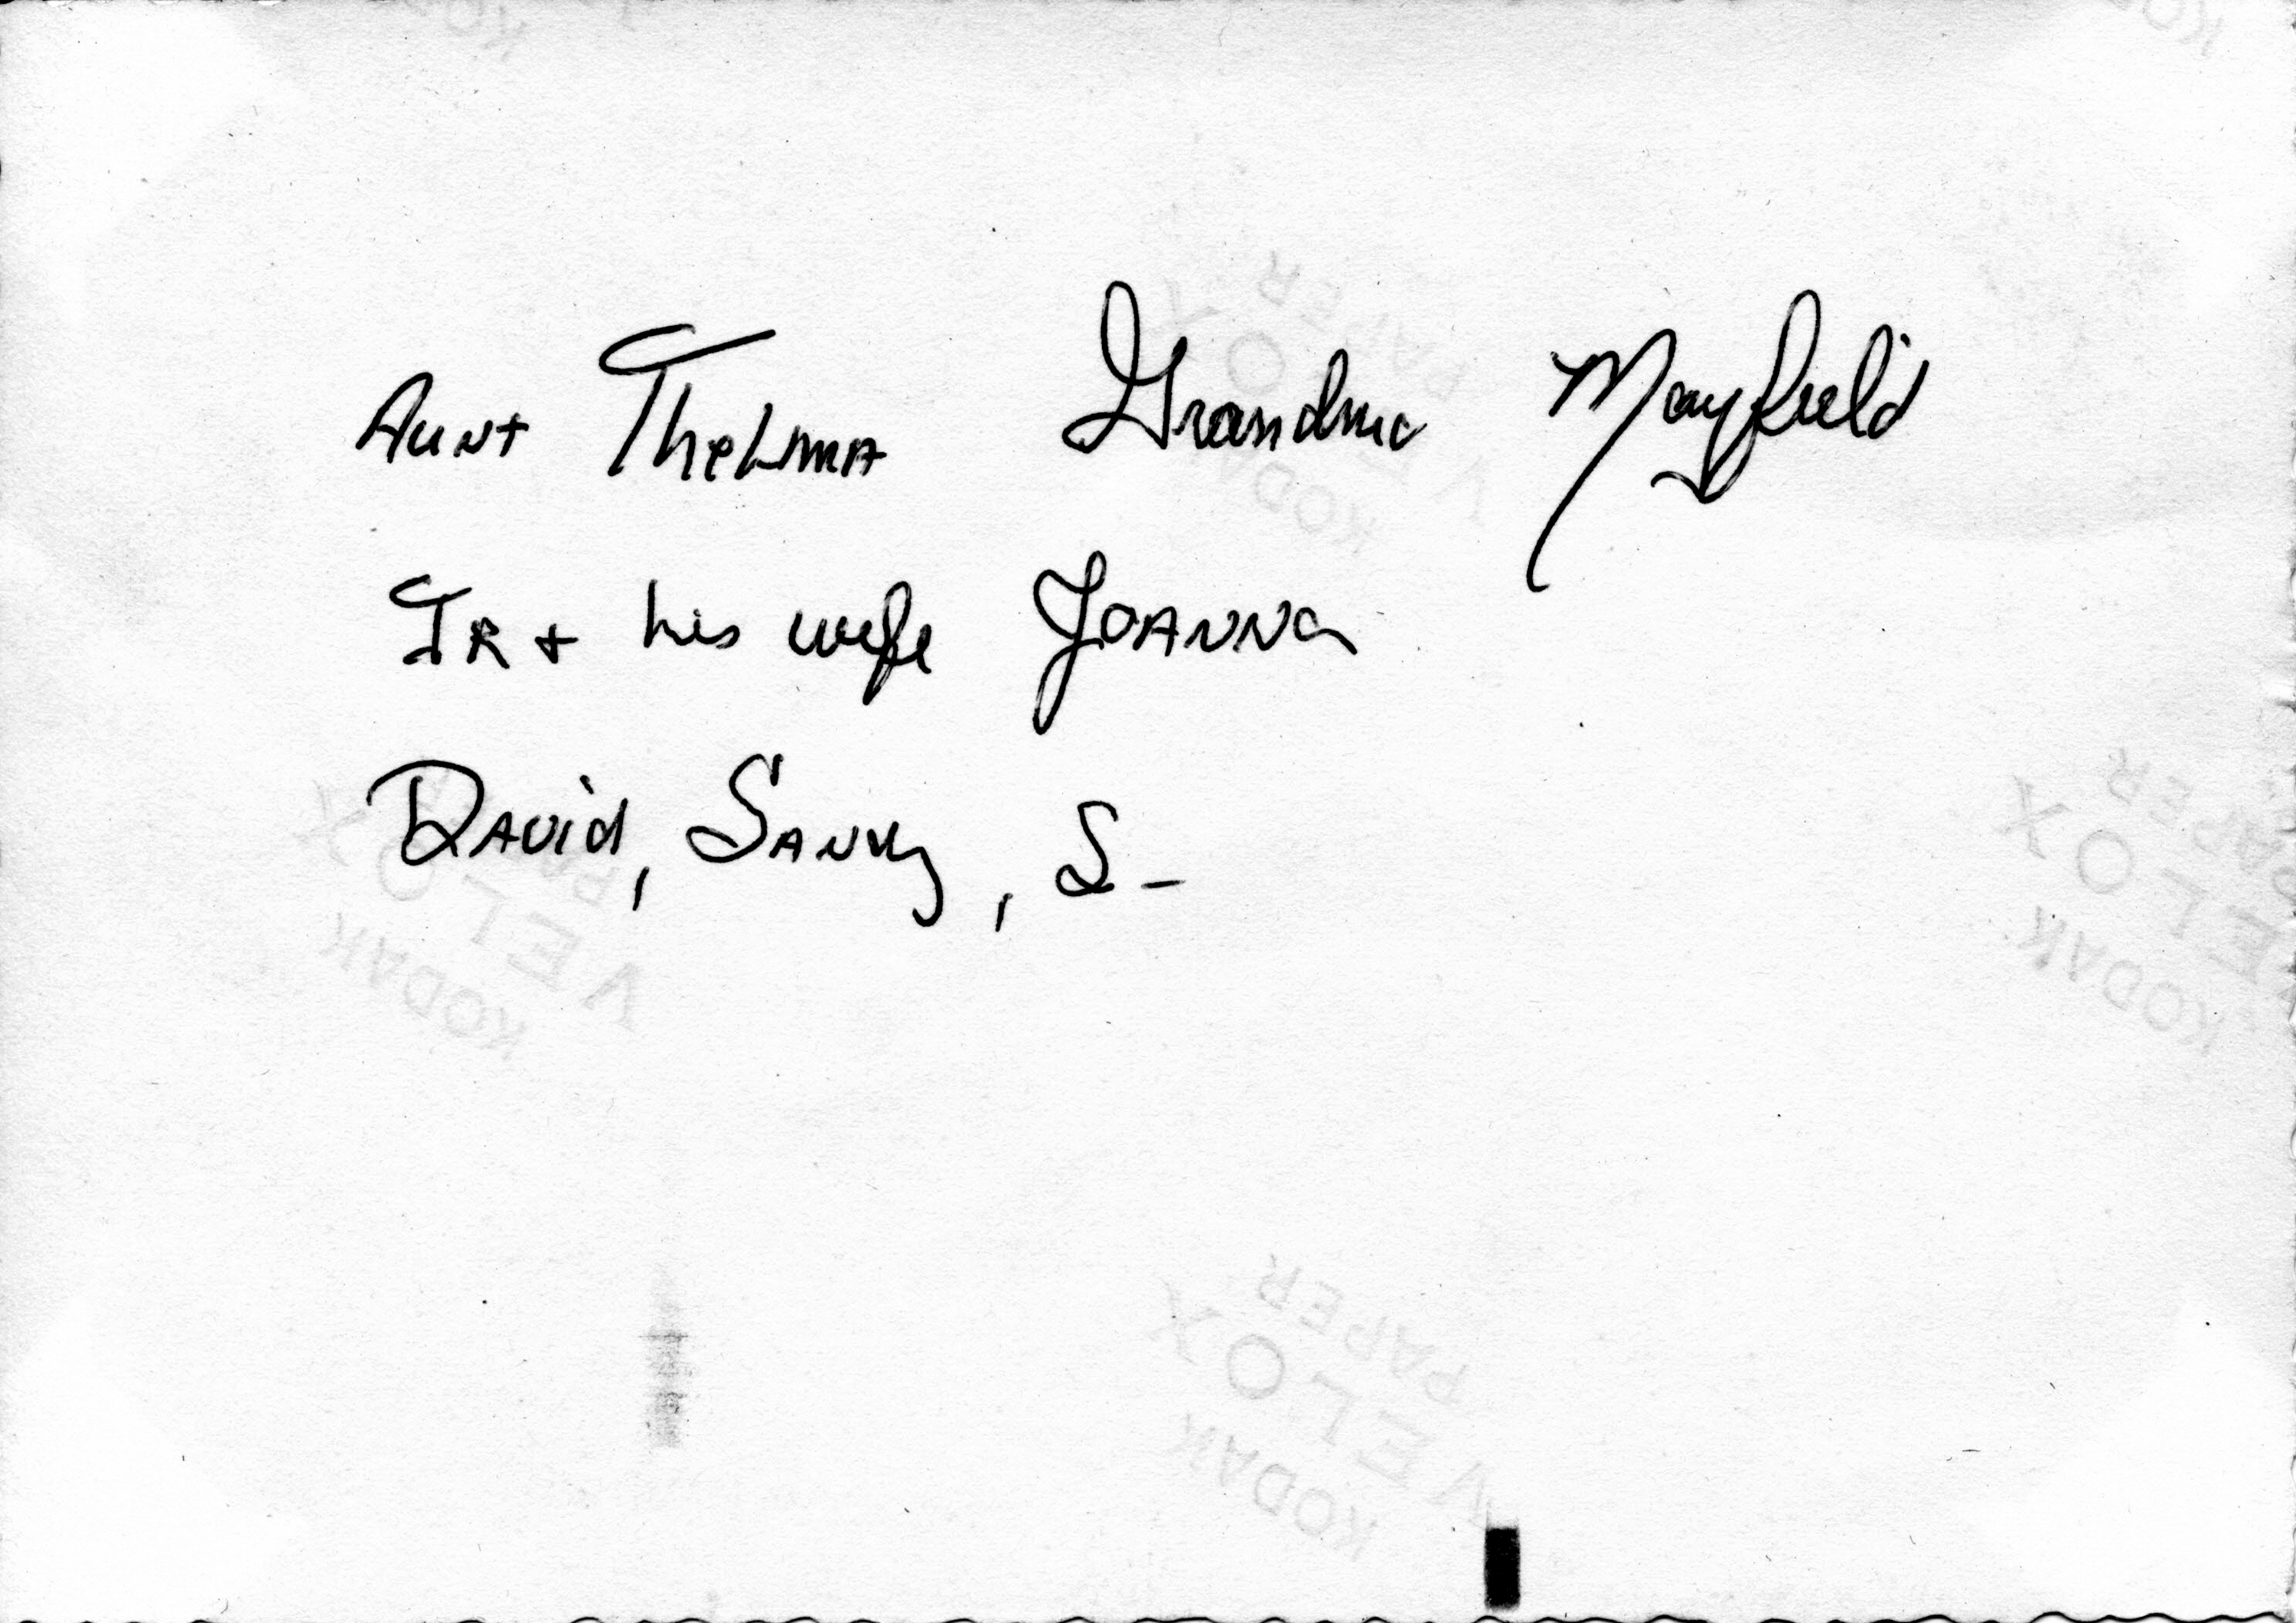 KODAK
KODAK
VELOX
PAPER
Aunt Thelma Grandma Mayfield
JR + his wife Joanna
David, Sandy, S-
KODAK
VELOX
PAPER
KODAK
VELOX
PAPER
KODAK
VELOX
PAPER